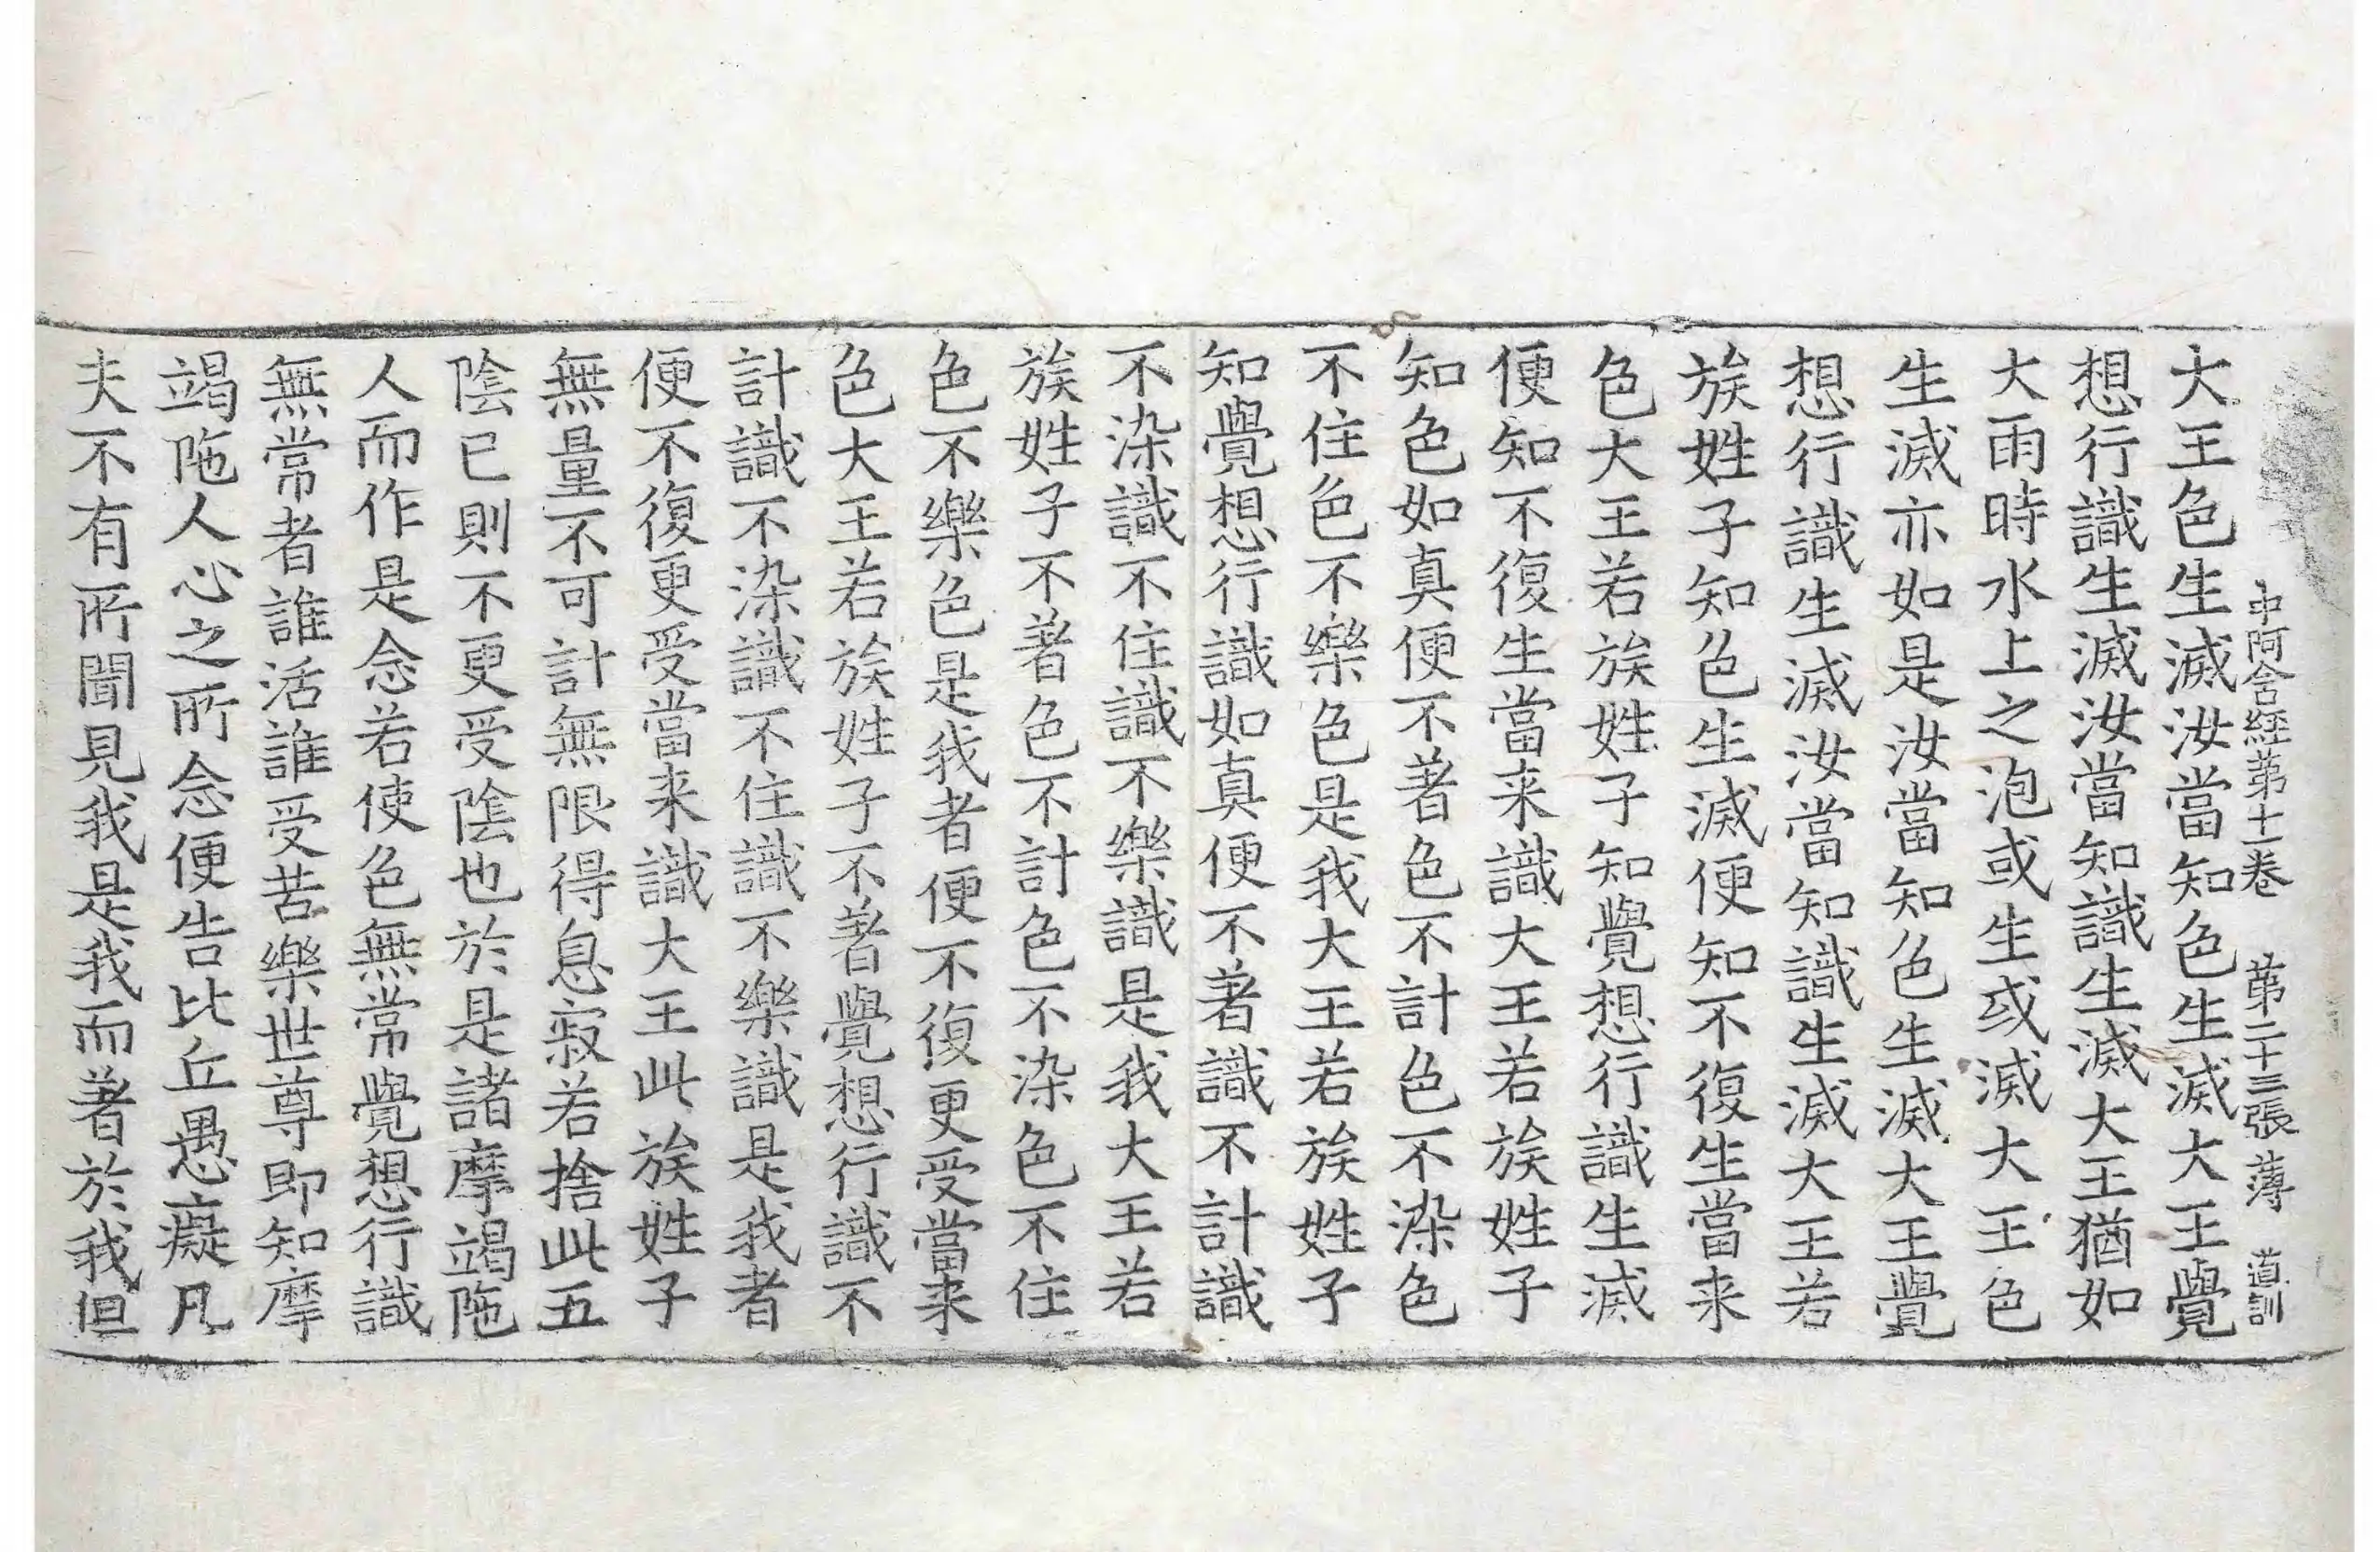 中阿含經第十一卷　第二十三張　薄　道訓
大王色生滅汝當知色生滅大王覺
想行識生滅汝當知識生滅大王猶如
大雨時水上之泡或生或滅大王色
生滅亦如是汝當知色生滅大王覺
想行識生滅汝當知識生滅大王若
族姓子知色生滅便知不復生當来
色大王若族姓子知覺想行識生滅
便知不復生當来識大王若族姓子
知色如真便不著色不計色不染色
不住色不樂色是我大王若族姓子
知覺想行識如真便不著識不計識
不染識不住識不樂識是我大王若
族姓子不著色不計色不染色不住
色不樂色是我者便不復更受當来
色大王若族姓子不著覺想行識不
計識不染識不住識不樂識是我者
便不復更受當来識大王此族姓子
無量不可計無限得息寂若捨此五
陰已則不更受陰也於是諸摩竭陁
人而作是念若使色無常覺想行識
無常者誰活誰受苦樂世尊即知摩
竭陁人心之所念便告比丘愚癡凡
夫不有所聞見我是我而著於我但